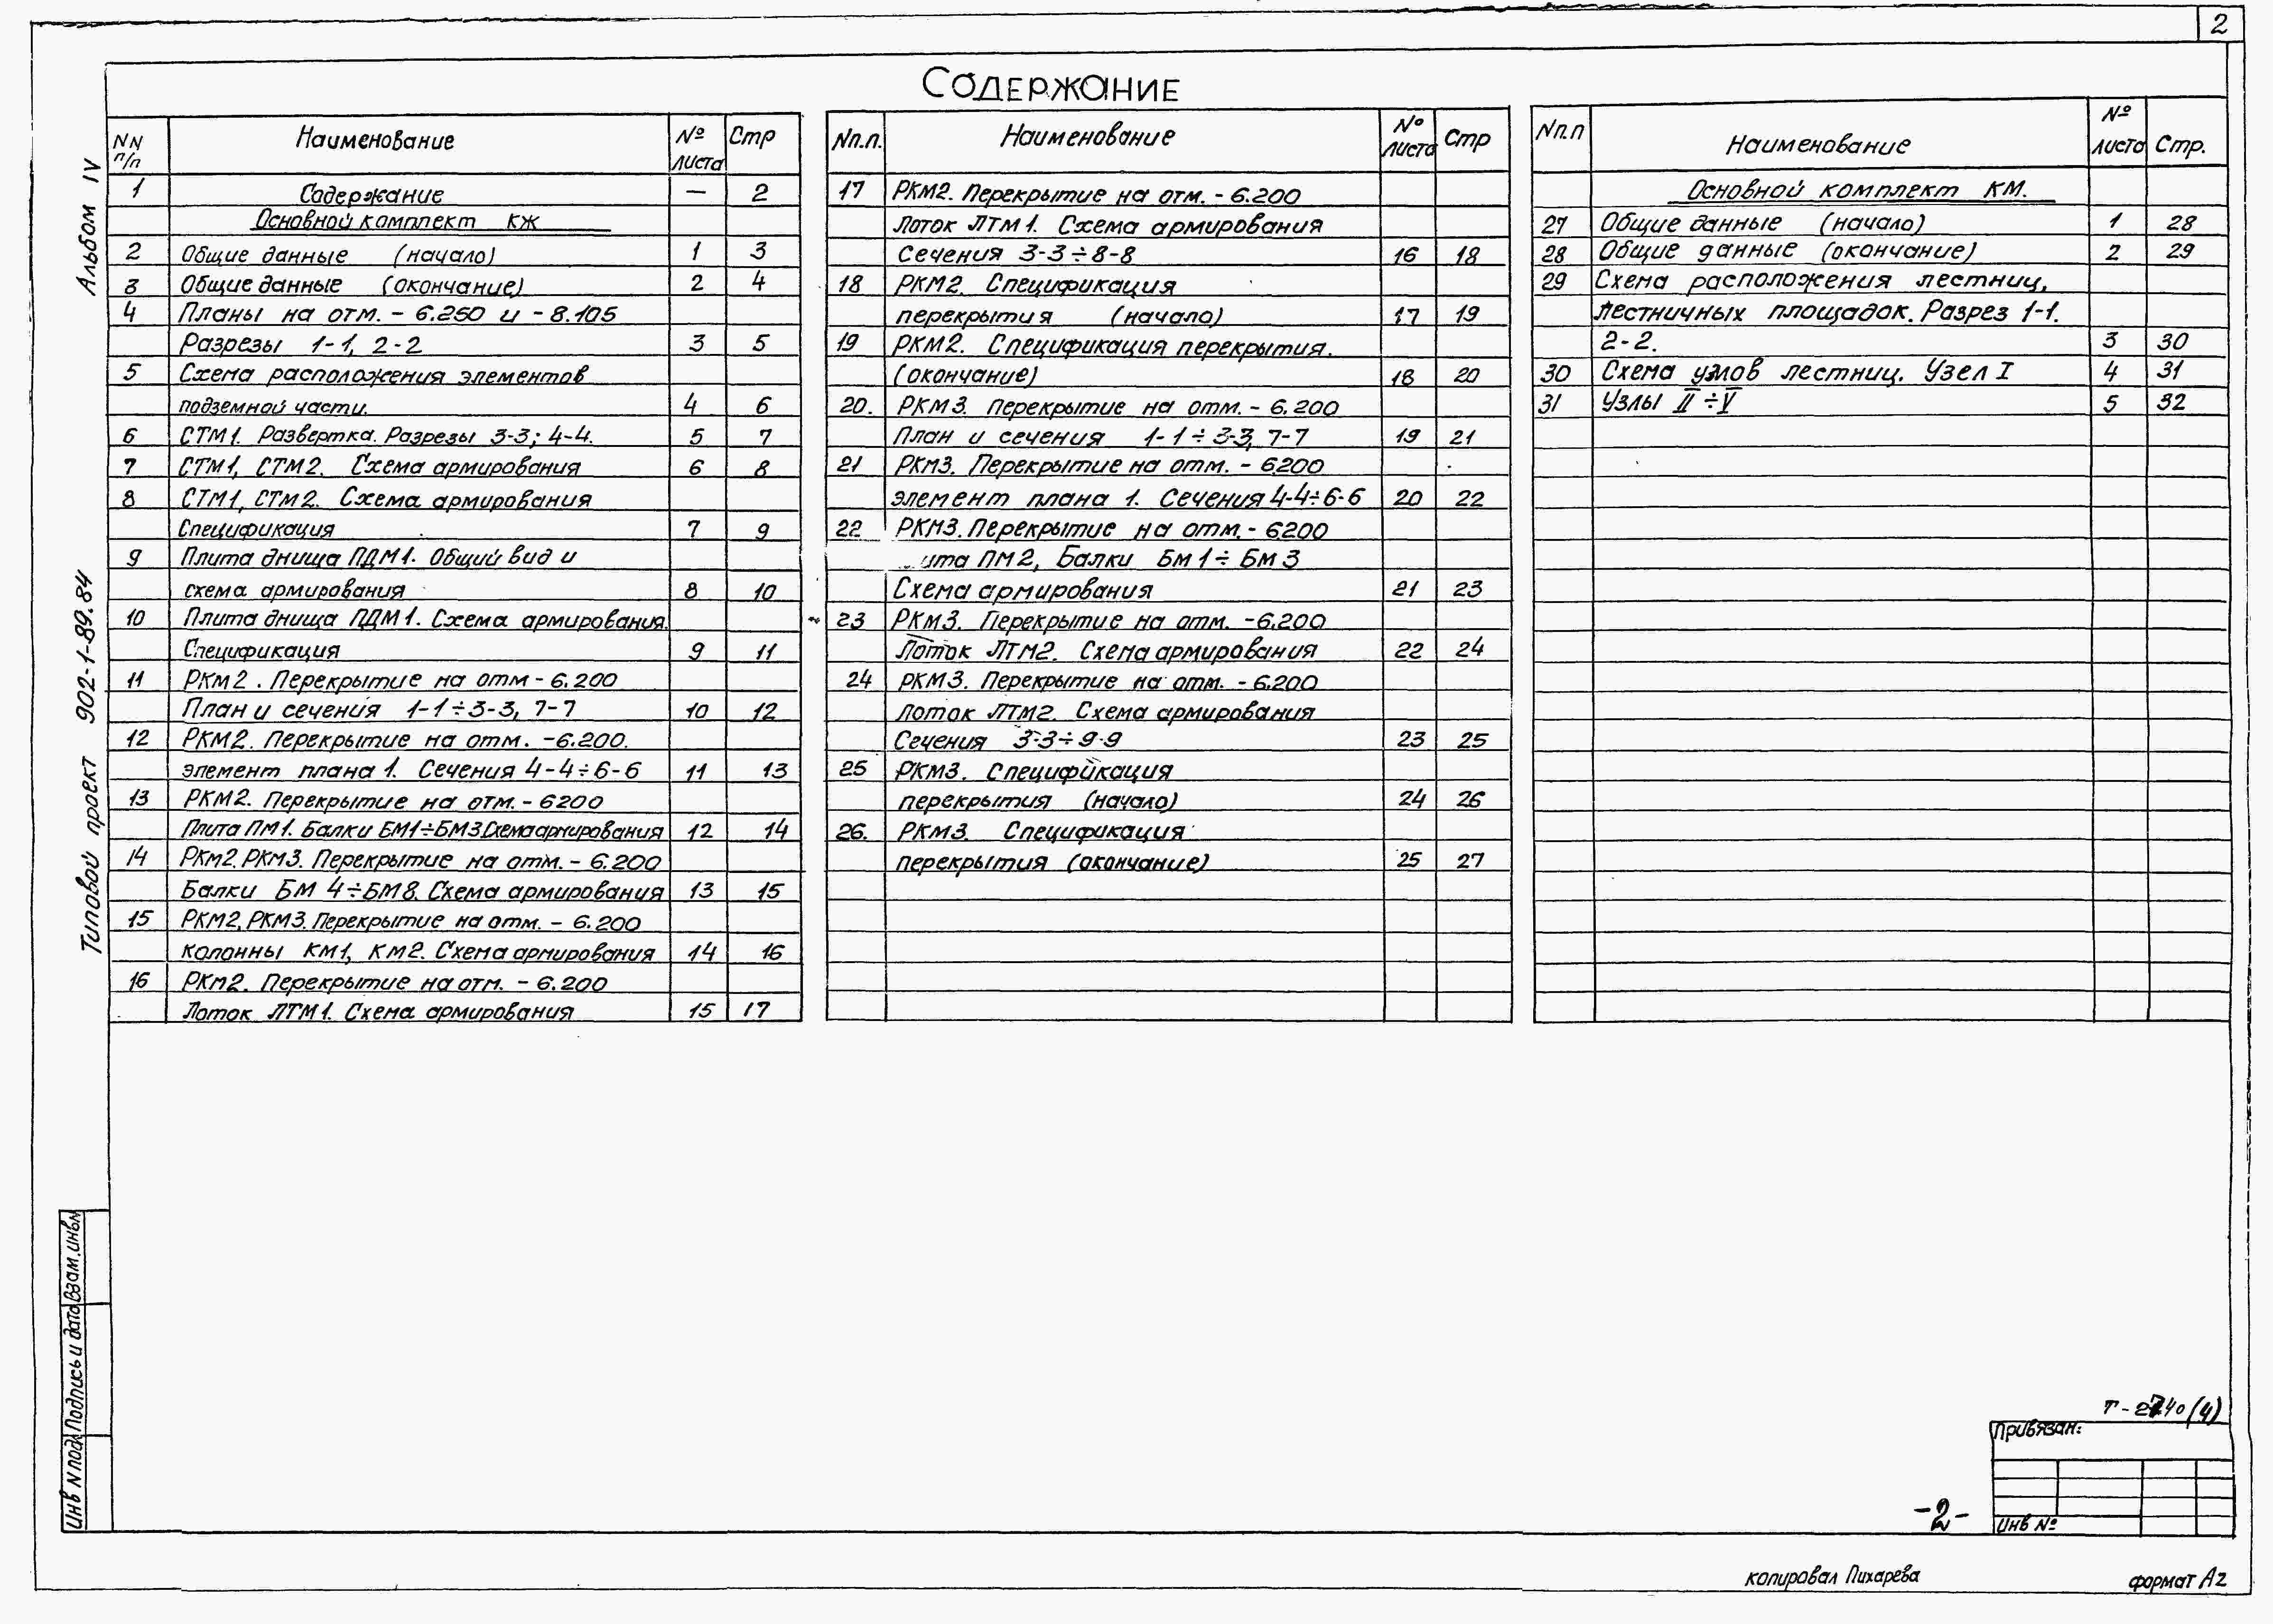 2
СОДЕРЖАНИЕ
Альбом IV
Типовой проект 902-1-89.84
NN п/п Наименование № листа Стр
1 Содержание — 2
Основной комплект КЖ
2 Общие данные (начало) 1 3
3 Общие данные (окончание) 2 4
4 Планы на отм. - 6.250 и - 8.105
Разрезы 1-1, 2-2 3 5
5 Схема расположения элементов
подземной части. 4 6
6 СТМ1. Развертка. Разрезы 3-3; 4-4. 5 7
7 СТМ1, СТМ2. Схема армирования 6 8
8 СТМ1, СТМ2. Схема армирования
Спецификация 7 9
9 Плита днища ПДМ1. Общий вид и
схема армирования 8 10
10 Плита днища ПДМ1. Схема армирования.
Спецификация 9 11
11 РКМ2. Перекрытие на отм - 6.200
План и сечения 1-1÷3-3, 7-7 10 12
12 РКМ2. Перекрытие на отм. -6.200.
элемент плана 1. Сечения 4-4÷6-6 11 13
13 РКМ2. Перекрытие на отм. - 6200
Плита ПМ1. Балки БМ1÷БМ3 Схема армирования 12 14
14 РКМ2. РКМ3. Перекрытие на отм. - 6.200
Балки БМ 4÷БМ8. Схема армирования 13 15
15 РКМ2, РКМ3. Перекрытие на отм. - 6.200
колонны КМ1, КМ2. Схема армирования 14 16
16 РКМ2. Перекрытие на отм. - 6.200
Лоток ЛТМ1. Схема армирования 15 17
Nп.п. Наименование № листа Стр
17 РКМ2. Перекрытие на отм. - 6.200
Лоток ЛТМ1. Схема армирования
Сечения 3-3÷8-8 16 18
18 РКМ2. Спецификация
перекрытия (начало) 17 19
19 РКМ2. Спецификация перекрытия.
(окончание) 18 20
20. РКМ3. Перекрытие на отм. - 6.200
План и сечения 1-1÷3-3, 7-7 19 21
21 РКМ3. Перекрытие на отм. - 6200
элемент плана 1. Сечения 4-4÷6-6 20 22
22 РКМ3. Перекрытие на отм. - 6200
ита ПМ2, Балки БМ1÷БМ3
Схема армирования 21 23
23 РКМ3. Перекрытие на отм. -6.200
Лоток ЛТМ2. Схема армирования 22 24
24 РКМ3. Перекрытие на отм. - 6.200
Лоток ЛТМ2. Схема армирования
Сечения 3-3÷9-9 23 25
25 РКМ3. Спецификация
перекрытия (начало) 24 26
26. РКМ3. Спецификация
перекрытия (окончание) 25 27
Nп.п Наименование № листа Стр.
Основной комплект КМ.
27 Общие данные (начало) 1 28
28 Общие данные (окончание) 2 29
29 Схема расположения лестниц,
лестничных площадок. Разрез 1-1.
2-2. 3 30
30 Схема узлов лестниц. Узел I 4 31
31 Узлы II÷V 5 32
Инв N подл Подпись и дата Взам.инв№
(4)
Привязан:
Инв №
-2-
копировал Пихарева
формат А2